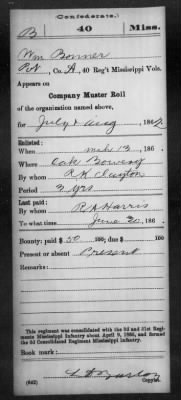 (Confederate.)
B 40 Miss.
Wm Bonner
Pvt, Co. A, 40 Reg't Mississippi Vols.
Appears on
Company Muster Roll
of the organization named above,
for July & Aug, 1862
Enlisted:
When Mch 13, 186 .
Where Oak Bowery
By whom R K Clayton
Period 3 yrs
Last paid:
By whom R A Harris
To what time June 30, 186 .
Bounty: paid $ 50 100; due $ 100
Present or absent Present
Remarks:
This regiment was consolidated with the 3d and 31st Regiments Mississippi Infantry about April 9, 1865, and formed
the 3d Consolidated Regiment Mississippi Infantry.
Book mark:
(642)
Copyist.